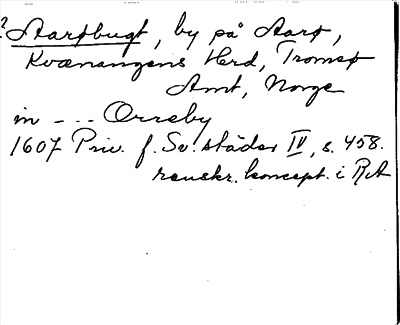 ? Aarøbugt, by på Aarø,
Kvænangens Hrd, Tromsø
Amt, Norge
in - - - Orreby
1607 Priv. f. Sv. städer IV, s. 458.
renskr. koncept. i RA